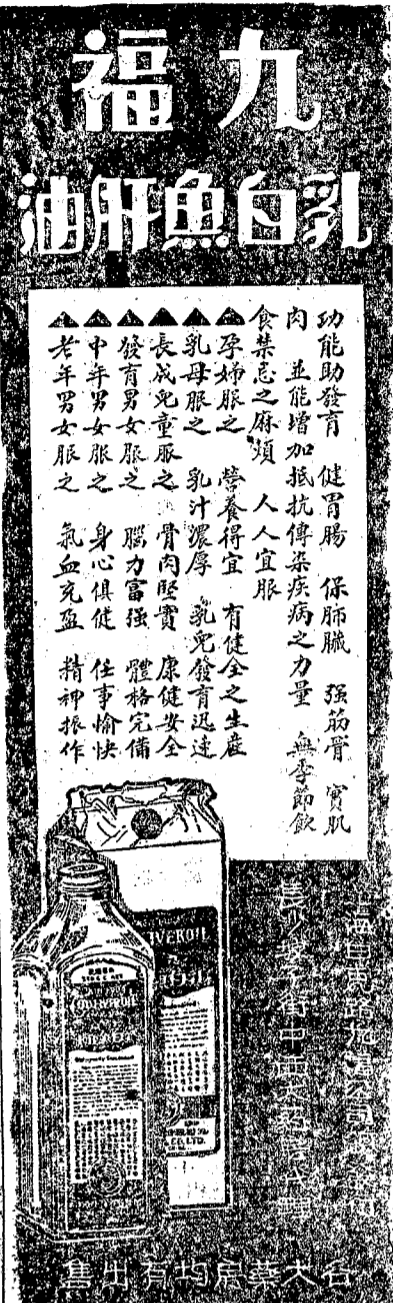 九福
乳白魚肝油
功能助發育 健胃腸 保肺臟 强筋骨 實肌
肉 並能增加抵抗傳染疾病之力量 無季節飲
食禁忌之麻煩 人人宜服
▲孕婦服之 營養得宜 有健全之生產
▲乳母服之 乳汁濃厚 乳兒發育迅速
▲長成兒童服之 骨肉堅實 康健安全
▲發育男女服之 腦力富强 體格完備
▲中年男女服之 身心俱健 任事愉快
▲老年男女服之 氣血充盈 精神振作
各大藥房均有出售
CO., LTD.